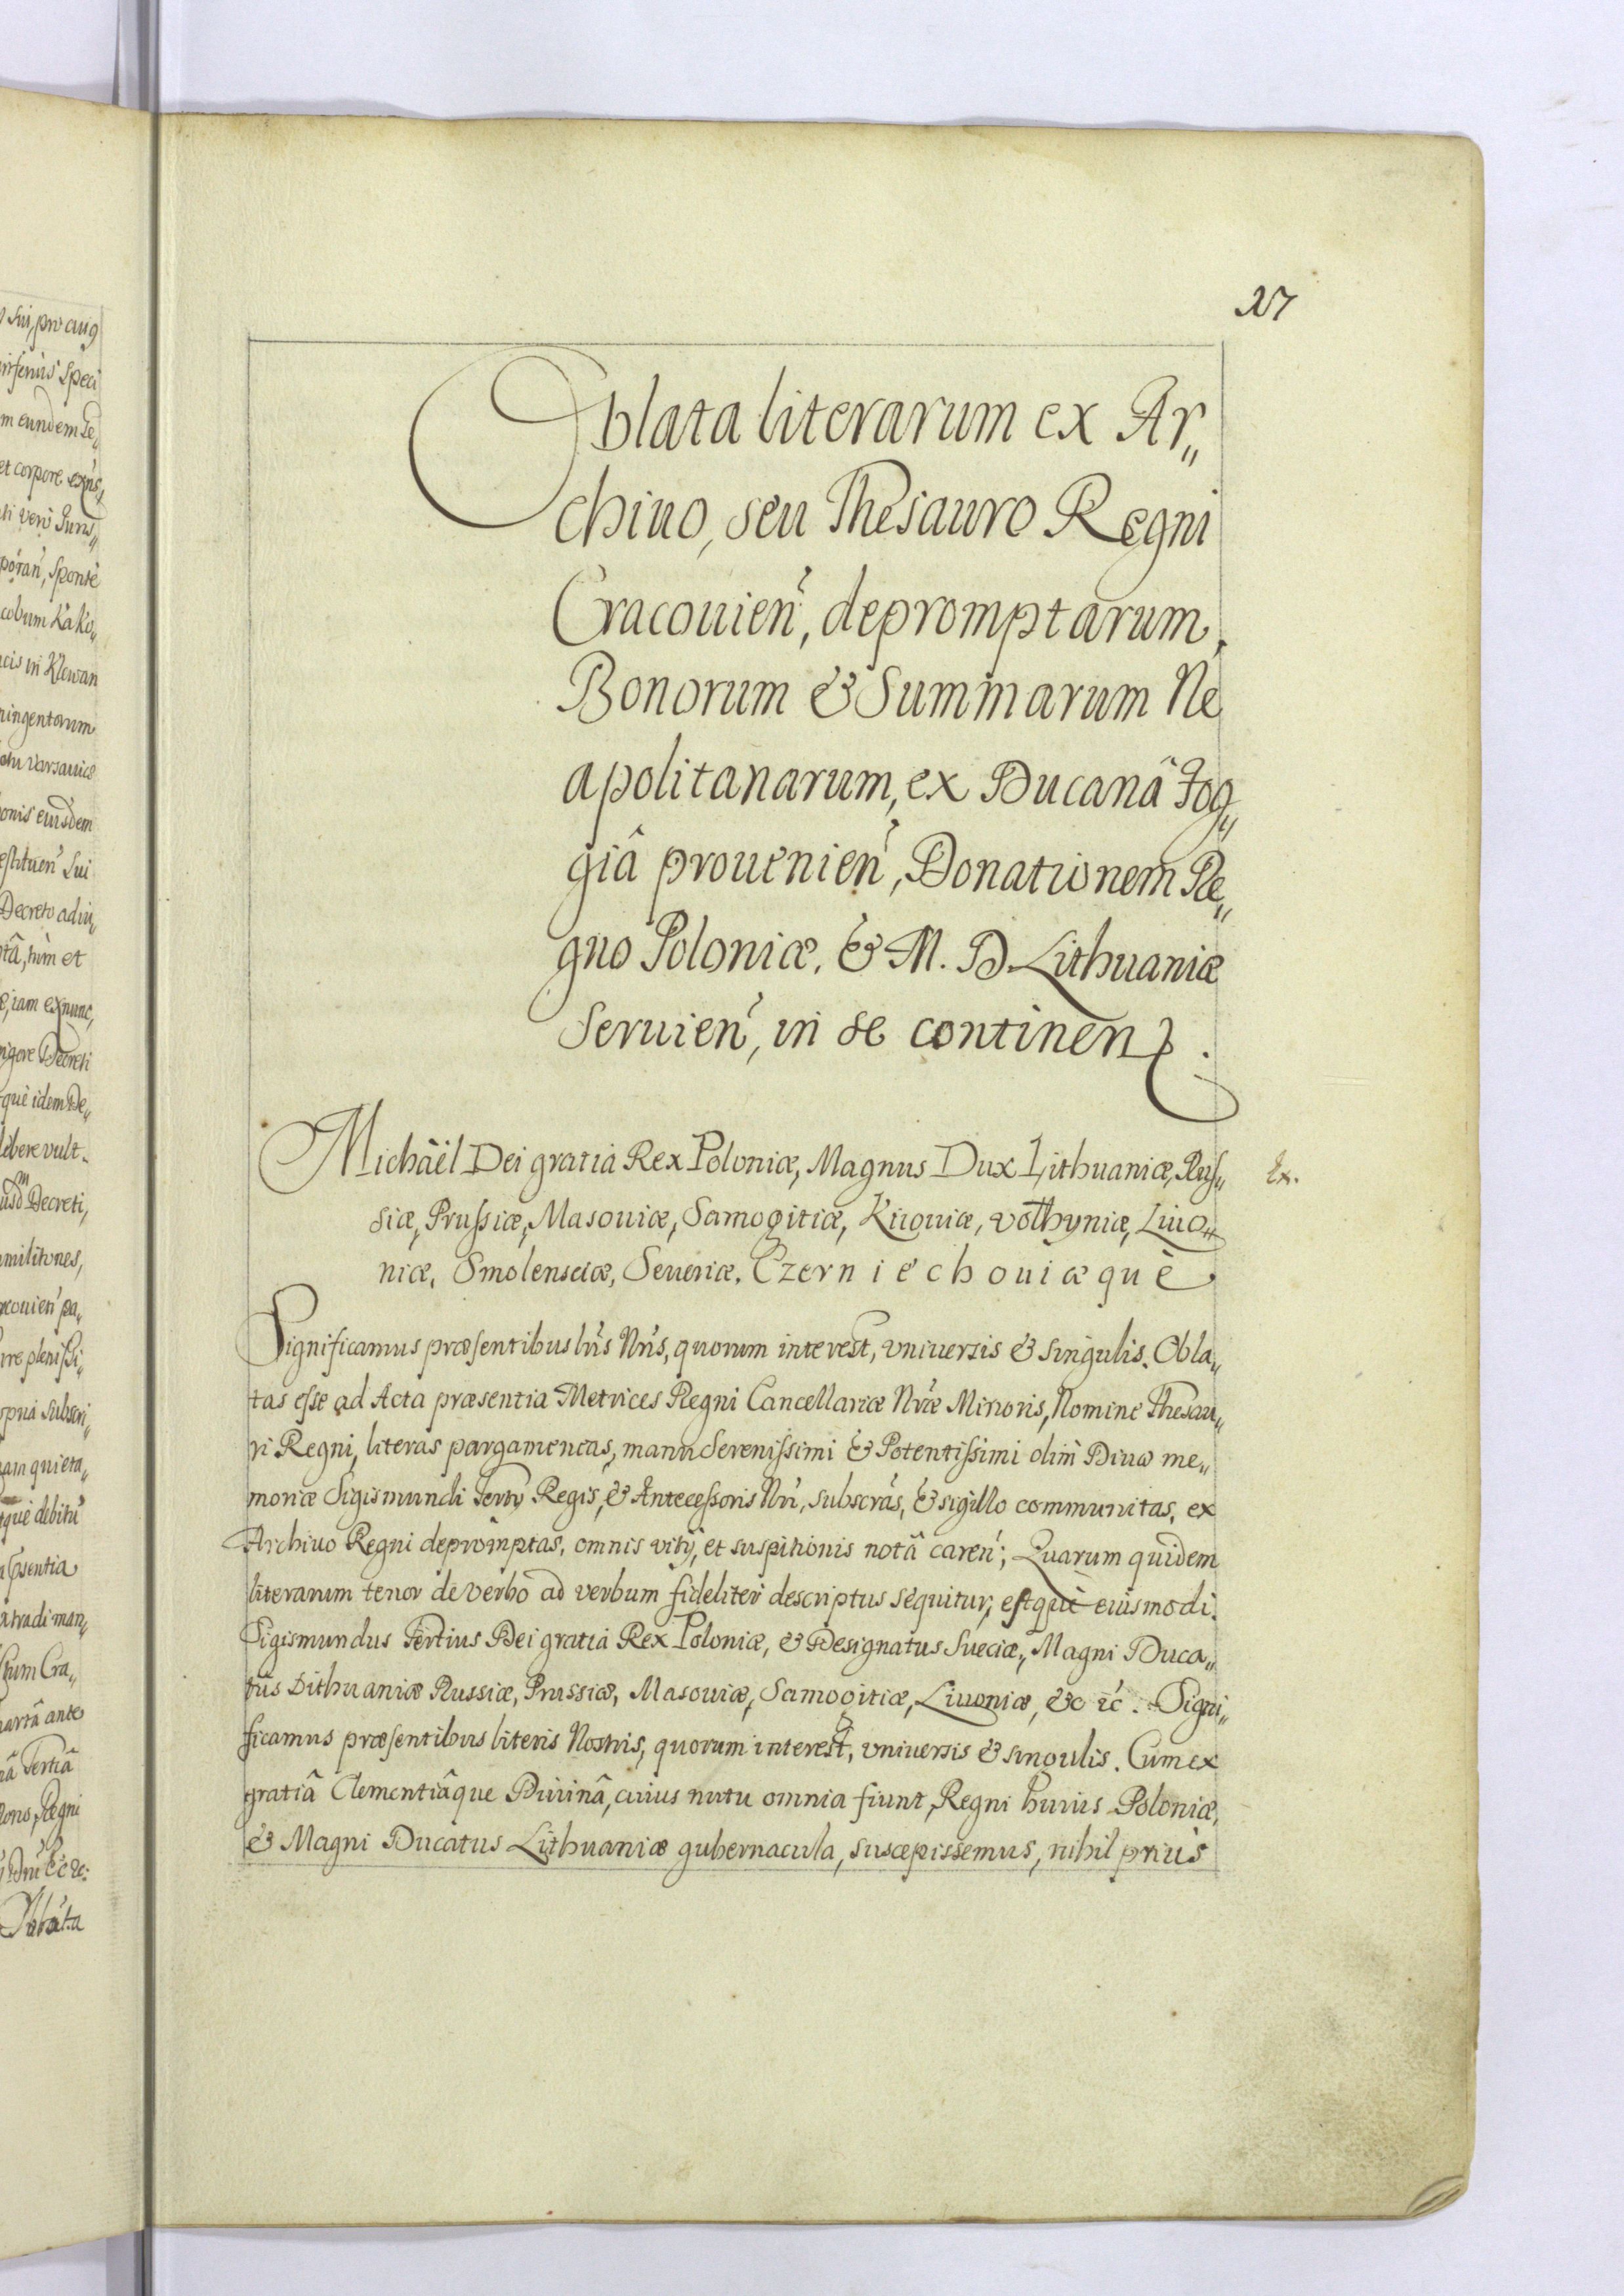 sui, pro cuig
speci
m eundem Te„
et corpore exñs,
veri Juris„
sponte
cobum Kako„
cis in Klewan
ningentorum
Varsauiæ
onis eiusdem
estituen̉ sui
Decreto adiu„
tâ, nim et
e, iam exnunc,
vigore Decreti
què idem De„
libere vult.
usdm Decreti,
militones,
racouien̉ pa„
rre plenissi„
opria subscri„
nam quieta„
què debitu
psentia
tradi man„
tum Cra„
quartâ ante
nâ Tertiâ
lono, Regni
Dnĩ &c &c:
Oblata
27
Oblata literarum ex Ar„
chiuo, seu Thesauro Regni
Cracouien̉, depromptarum,
Bonorum & Summarum Ne
apolitanarum, ex Ducanâ Fog„
giâ prouenien̉, Donationem Re„
gno Poloniæ, & M. D. Lithuaniæ
seruien̉, in se continen.
Michäel Dei gratia Rex Poloniæ, Magnus Dux Lithuaniæ, Rus„
siæ, Prussiæ, Masouiæ, Samogitiæ, Kiiouiæ, Volhyniæ, Liuo„
niæ, Smolensciæ, Seueriæ, Czerniechouiæquè
Ex.
Significamus præsentibus lr̃is Nr̃is, quorum interest, vniuersis & singulis. Obla„
tas esse ad Acta præsentia Metrices Regni Cancellariæ Nr̃æ Minoris, Nomine Thesau„
ri Regni, literas pargameneas, manu Serenissimi & Potentissimi olim Diuæ me„
moriæ Sigismundi Tertij Regis, & Antecessoris Nr̃i, subscr̃as, & sigillo communitas, ex
Archiuo Regni depromptas, omnis vitij, et suspitionis notâ caren̉; Quarum quidem
literarum tenor de verbo ad verbum fideliter descriptus sequitur, estquè eiusmodi.
Sigismundus Tertius Dei gratia Rex Poloniæ, & Designatus Sueciæ, Magni Duca„
tus Lithuaniæ Russiæ, Prussiæ, Masouiæ, Samogitiæ, Liuoniæ, &c &c. Signi„
ficamus præsentibus literis Nostris, quorum interest, vniuersis & singulis. Cum ex
gratiâ Clementiâque Diuinâ, cuius nutu omnia fiunt, Regni huius Poloniæ,
& Magni Ducatus Lithuaniæ gubernacula, suscepissemus, nihil priùs